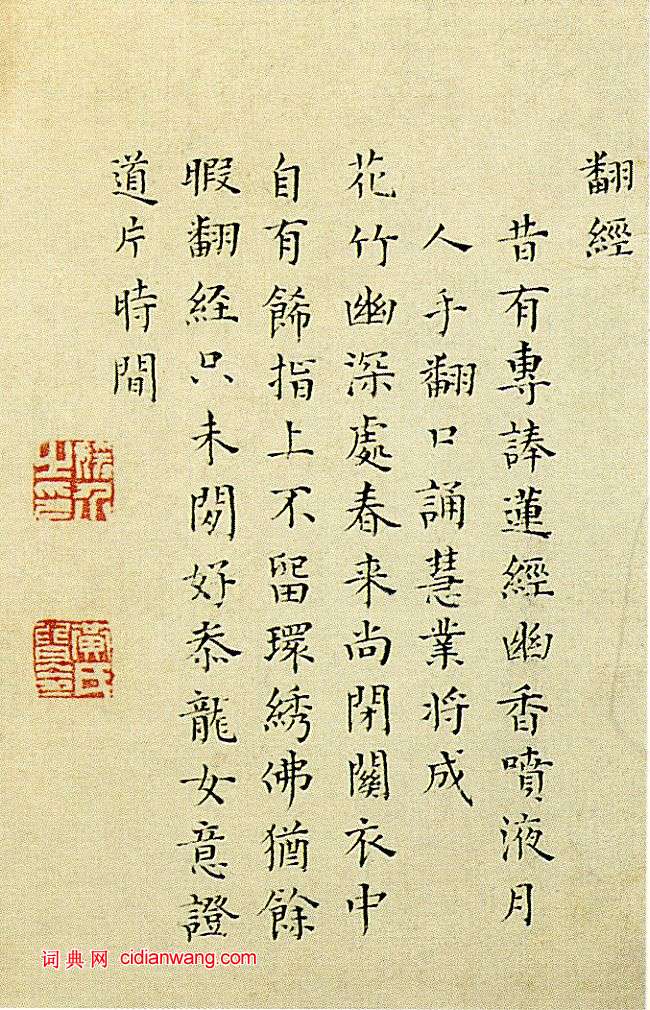 翻經
昔有專蓮經幽香噴液月
人手翻口誦慧業将成
花竹幽深處春来尚閉關衣中
自有餙指上不留環綉佛猶餘
暇翻経只未閑好叅龍女意證
道片時間
词典网 cidianwang.com